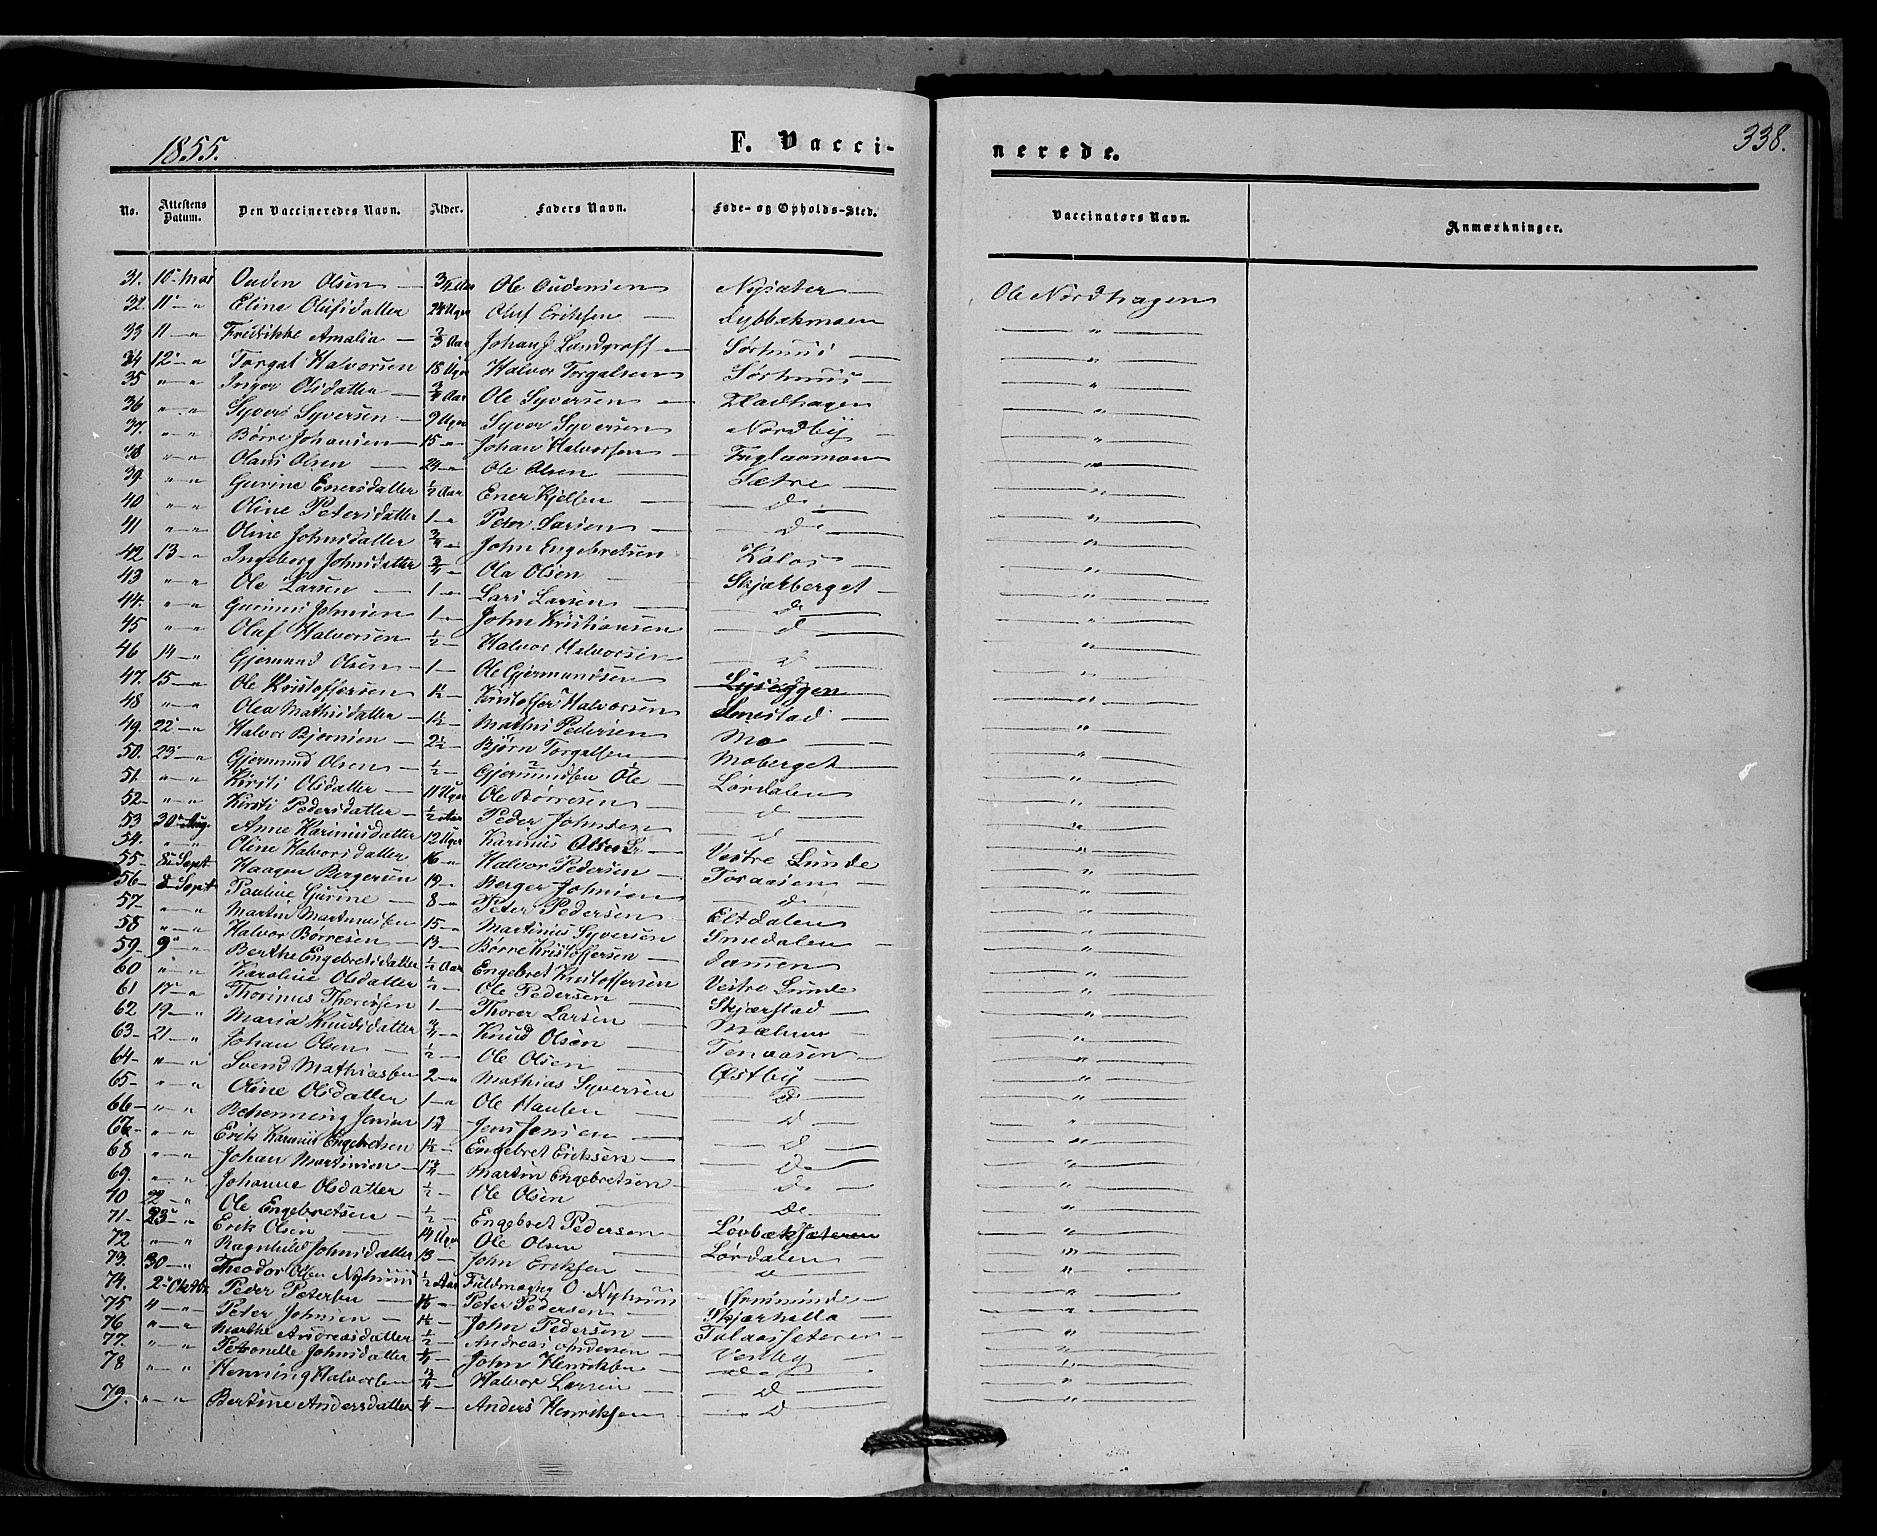 1855.
F. Vacci-
nerede.
338.
No. Attestens Datum. Den Vaccineredes Navn. Alder. Faders Navn. Føde- og Opholds-Sted. Vaccinators Navn. Anmærkninger.
31. 10 Mai Ouden Olsen — 3/4 Aar Ole Oudensen Nysæter — Ole Nordhagen
32. 11 — " Eline Olufsdatter Uger Oluf Eriksen — Lybbækmoen — " —
33 11 — " Fredrikke Amalia — Aar Johan J Lundgroff — Sørhuus — — " —
34 12 — " Torgal Halvorsen 18 Uger Halvor Torgalsen Sørhuus — — " —
35 " — " Inger Olsdatter — 3/4 Aar Ole Syversen — Hadhagen — " —
36 " — " Syver Syversen — 9 Uger Syver Syversen Nordby — — " —
37. " — " Børre Johansen — 15 — " Johan Halvorsen — — " —
38 " — " Olaus Olsen — 24 — " Ole Olsen — Sætre — — " —
39 " — " Gurine Enersdatter 1/2 Aar Ener Kjelsen — — d — — " —
40 " — " Oline Petersdatter 1 — " Peter Larsen — d — — " —
41 " — " Oline Johnsdatter 3/4 — " John Engebretsen — " —
42 13 — " Ingeborg Johnsdatter 3/4 — " Ola Olsen — Kolos — — " —
43 " — " Ole Larsen — 1 — " Lars Larsen — Skjærberget — — " —
44. " — " Gunnus Johnsen 1 — " John Kristiansen — d — — " —
45 " — " Oluf Halvorsen 1/2 — Halvor Halvorsen — d — — " —
46 14 — " Gjermund Olsen — 1 — Ole Gjermundsen — d — — " —
47. 15 — " Ole Kristoffersen 1 1/2 — Kristoffer Halvorsen Lyseggen — " —
48 " — " Olea Mathisdatter — 1 1/2 — Mathis Pedersen Smestad — — " —
49. 22 — " Halvor Bjørnsen — 2 1/2 — Bjørn Torgalsen — Mo — — " —
50. 23 — " Gjermund Olsen — 1/2 — Gjermundsen Ole — Moberget — — " —
51. " — " Kirsti Olsdatter — 11 Uger Ole Børresen — Lørdalen — " —
52 — " — " Kirsti Pedersdatter — 1/2 Aar Peder Johnsen — d — — " —
53 30 Aug. Anne Karinusdatter 12 Uger Karinus Olsen — d — — " —
54. " — " Oline Halvorsdatter 16 — " Halvor Pedersen — Vestre Lunde — " —
55 — Sept Haagen Bergersen 19 — " Berger Johnsen — Toraasen — — " —
56 — 8 Sept Pauline Gurine — 8 — " Peter Pedersen — d — — " —
57 — " — " Martin Martinussen 15 — " Martinus Syversen Eltdalen — " —
58 " — " Halvor Børresen — 13 — Børre Kristoffersen — Smedalen — — " —
59 — 9 — " Berthe Engebretsdatter 1/2 Aar Engebret Kristoffersen Dammen — " —
60 " — " Karoline Olsdatter 1/2 — Ole Pedersen — Vestre Lunde — " —
61 17 — " Thorinus Thoressen 1 — Thorer Larsen — Skjærstad — — " —
62 19 — " Maria Knudsdatter 3/4 — Knud Olsen — Mælum — — " —
63 — 21 — " Johan Olsen — 1/2 — Ole Olsen — Tenaasen — — " —
64 — " — " Svend Mathiassen 2 — " Mathias Syversen Østby — — " —
65 — " — " Oline Olsdatter 1 — " Ole Hansen — d — — " —
66 — " — " Behenning Jensen Jens Jensen — d — — " —
67 — " — " Erik Karinus Engebretsen 1 1/2 — Engebret Eriksen — — d — — " —
68 " — " Johan Martinsen — Martin Engebretsen — — d — — " —
69. " — " Johanne Olsdatter 1/2 — Ole Olsen — d — — " —
40 22 — " Ole Engebretsen — 1/2 — Engebret Pedersen — de — — " —
71 — 23 — " Erik Olsen — 14 Uger Ole Olsen — Løvbæksæteren — " —
72 " — " Ragnhild Johnsdatter 13 — John Eriksen — Lørdalen — — " —
73. 30 — " Theodor Olsen Nyhuus 1/2 Aar Fuldmægtig O. Nyhuus — d — — " —
74. 2 Oktbr. Peder Petersen — Peter Pedersen — — " —
75 4 — " Peter Johnsen — 1 1/2 — John Pedersen — Skjærhella — " —
76 " — " Marthe Andreasdatter 1/2 — Andreas Andersen Fulaasseteren — — " —
77. " — " Petronelle Johnsdatter — John Henriksen — Vestby — — " —
78 " — " Henning Halvorsen 3/4 — Halvor Larsen — — d — — " —
79. " — " Bertine Andersdatter 1/4 — Anders Henriksen — d — " —